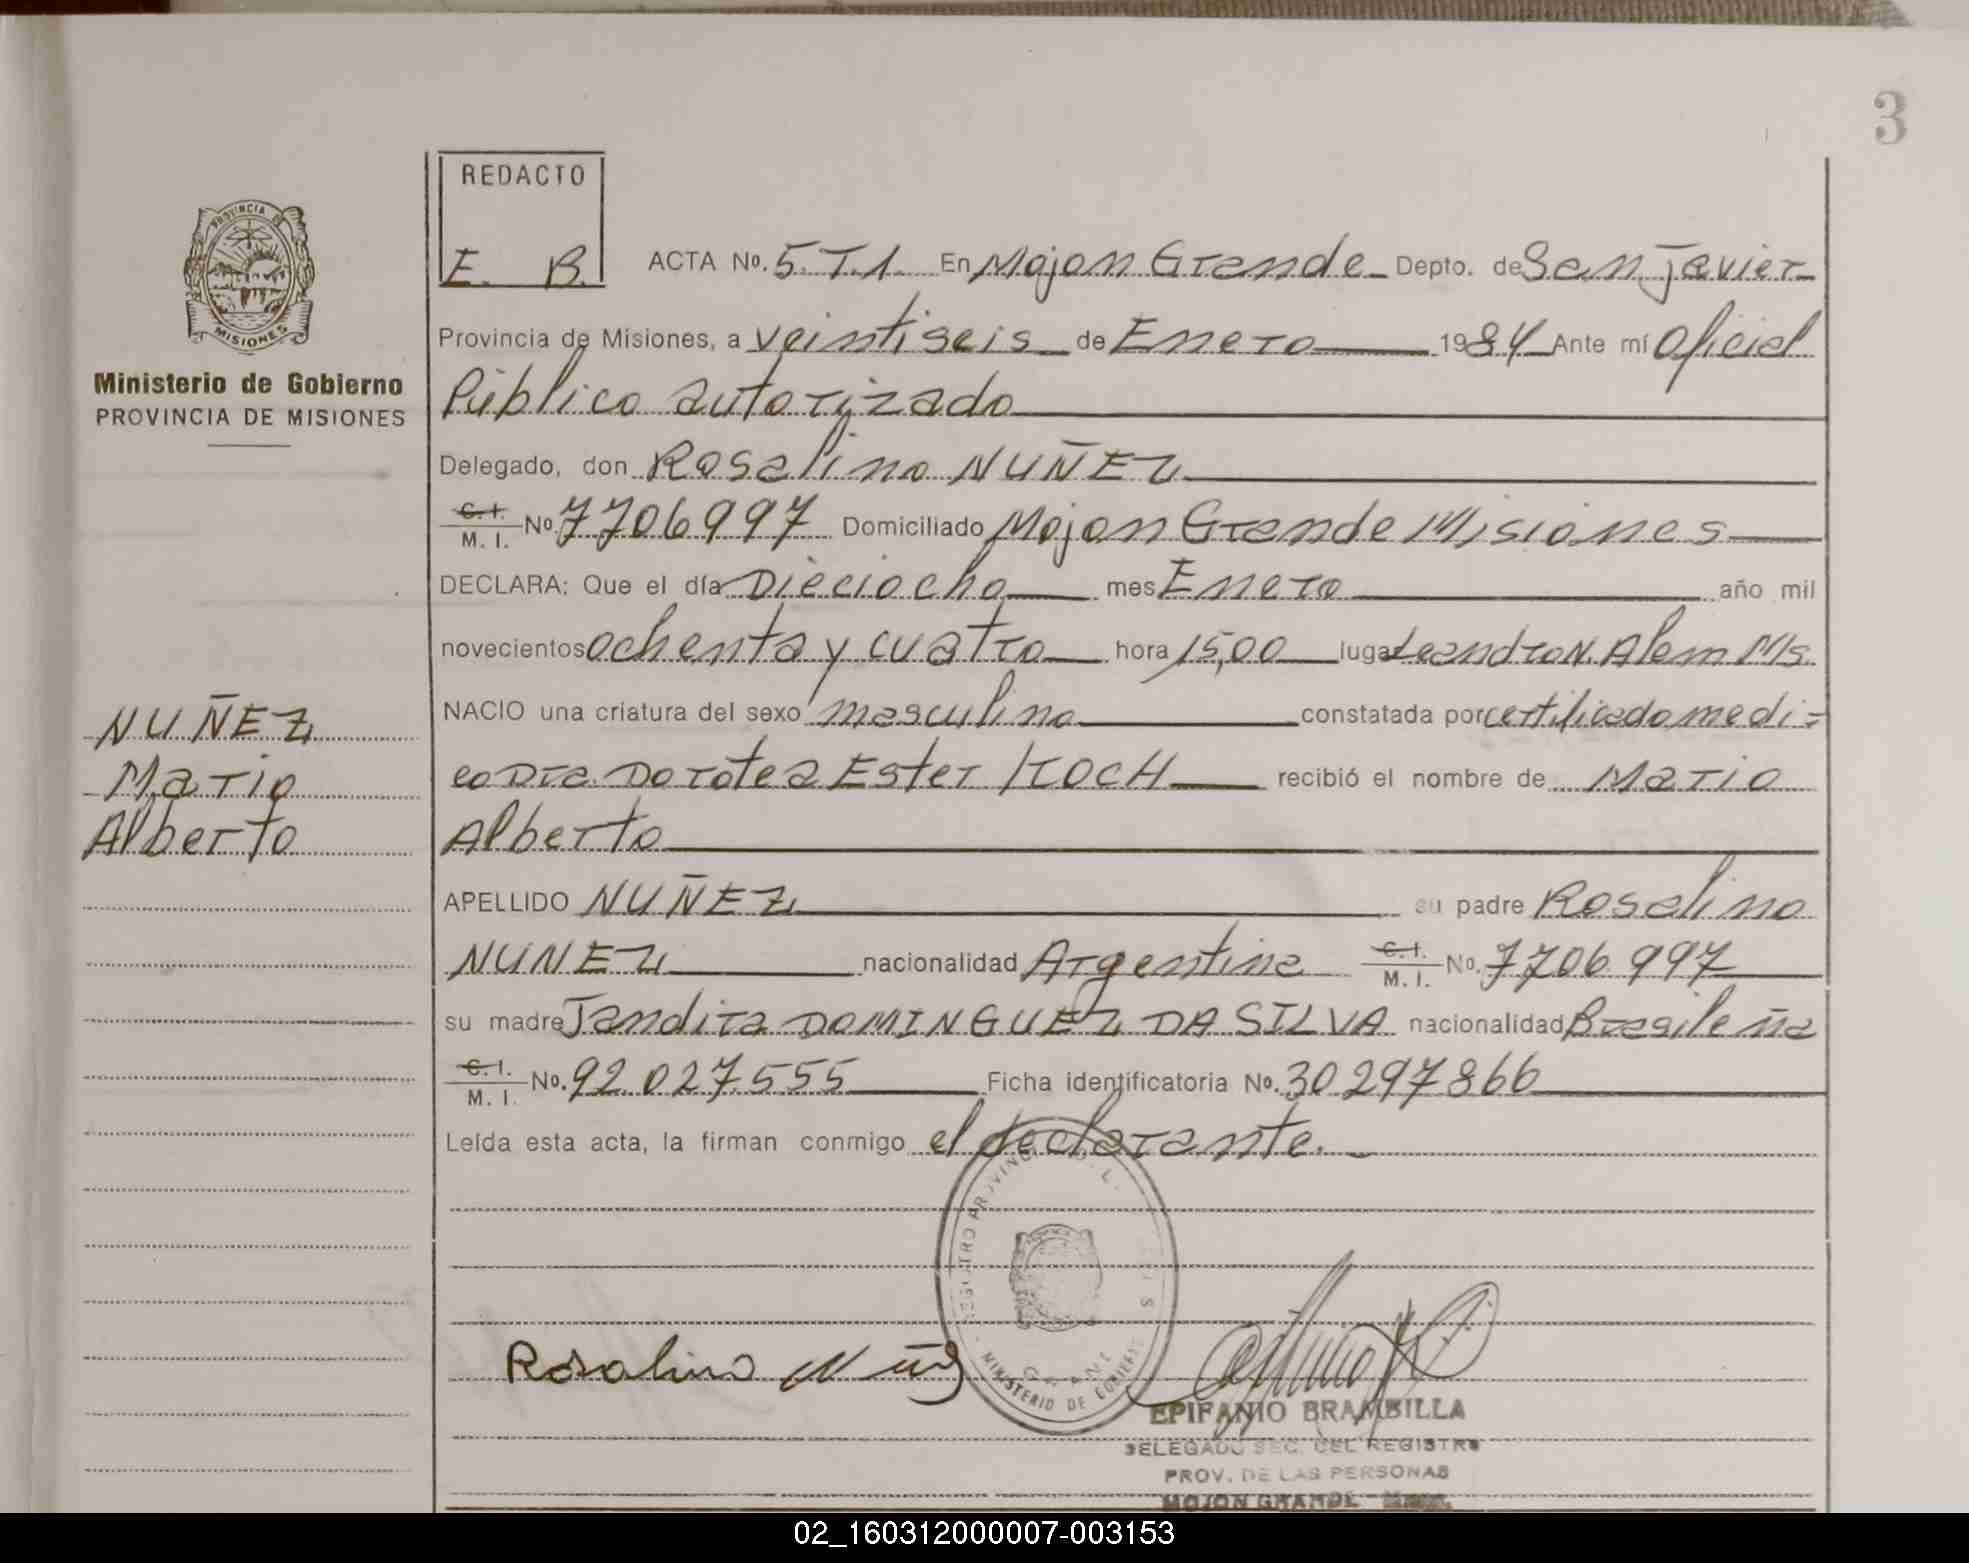 3
REDACTO
E. B.
ACTA No. 5. T.1. En Mojon Grande Depto. de San Javier
PROVINCIA DE
MISIONES
Ministerio de Gobierno
PROVINCIA DE MISIONES
Provincia de Misiones, a veintiseis de Enero 1984 Ante mí Oficial
Público autorizado
Delegado, don Rosalino NUÑEZ
C. I. / M. I. No. 7706997 Domiciliado Mojon Grande Misiones
DECLARA: Que el día Dieciocho mes Enero año mil
novecientos ochenta y cuatro hora 15,00 lugar Leandro N. Alem Ms.
NUÑEZ
Mario
Alberto
NACIO una criatura del sexo masculino constatada por certificado medi=
co Dra. Dorotea Ester KOCH recibió el nombre de Mario
Alberto
APELLIDO NUÑEZ su padre Rosalino
NUNEZ nacionalidad Argentina C. I. / M. I. No. 7706997
su madre Jandira DOMINGUEZ DA SILVA nacionalidad Brasileña
C. I. / M. I. No. 92.027.555 Ficha identificatoria No. 30297866
Leída esta acta, la firman conmigo el declarante.
Rosalino Nuñez
MINISTERIO DE GOBIERNO
EPIFANIO BRAMBILLA
DELEGADO SEC. DEL REGISTRO
PROV. DE LAS PERSONAS
MOJON GRANDE
02_160312000007-003153